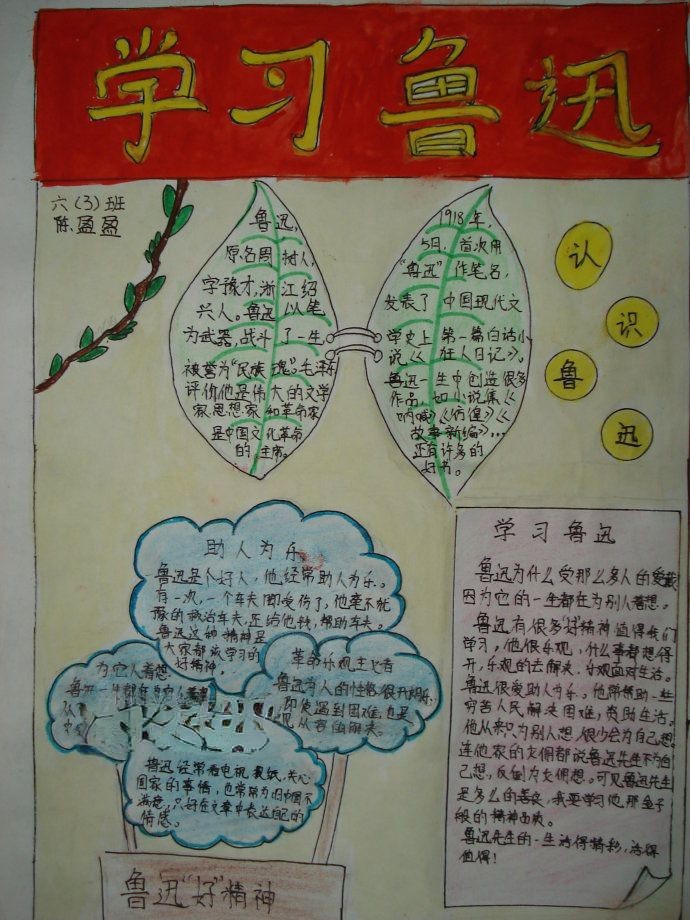 学习鲁迅
六(3)班
陈盈盈
鲁迅,
原名周树人,
字豫才,浙江绍
兴人。鲁迅以笔
为武器,战斗了一生,
被誉为“民族魂。”毛泽东
评价他是伟大的文学
家思想家和革命家
是中国文化革命
的主席。
1918年,
5日,首次用
“鲁迅”作笔名,
发表了中国现代文
学史上第一篇白话小
说《狂人日记》。
鲁迅一生中创造很多
作品,如小说集《
呐喊》《彷徨》《
故事新编》…
还有许多的
好书。
认
识
鲁
迅
助人为乐
鲁迅是个好人,他经常助人为乐。
有一次,一个车夫脚受伤了,他毫不犹
豫的救治车夫,还给他钱,帮助车夫。
鲁迅这种精神是
大家都该学习的
好精神。
为它人着想
鲁迅一生都
革命乐观主义者
鲁迅为人的性格很开朗乐,
即使遇到困难,也是
从容面解决。
鲁迅经常看电视、报纸,关心
国家的事情,也常常为旧中国不
满意,只好在文章中表达自己的
情感。
鲁迅“好”精神
学习鲁迅
鲁迅为什么受那么多人的爱戴
因为它的一生都在为别人着想。
鲁迅有很多好精神值得我们
学习。他很乐观,什么事都想得
开,乐观的去解决,乐观面对生活。
鲁迅很爱助人为乐。他常帮助一些
穷苦人民解决困难,资助生活。
他从来只为别人想,很少会为自己想。
连他家的女佣都说鲁迅先生不为自
己想,反倒为女佣想。可见鲁迅先生
是多么的善良,我要学习他那金子
般的精神品质。
鲁迅先生的一生活得精彩,活得
值得!